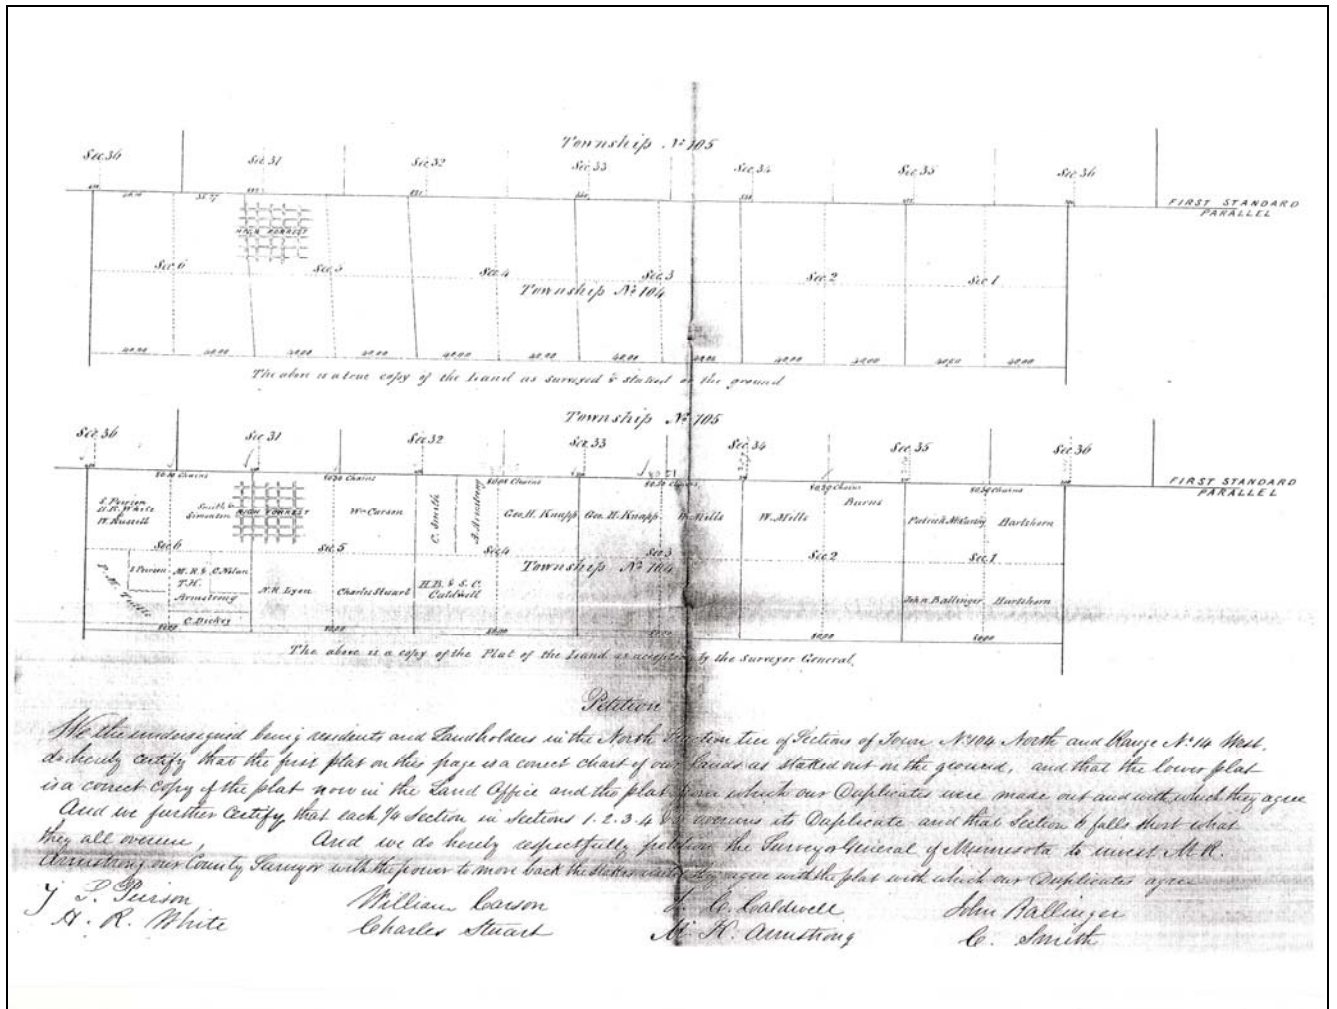 Township No 105
Sec 36 Sec 31 Sec 32 Sec 33 Sec 34 Sec 35 Sec 36
FIRST STANDARD
PARALLEL
HIGH FORREST
Sec 6 Sec 5 Sec 4 Sec 3 Sec 2 Sec 1
Township No 104
40.00 40.00 40.00 40.00 40.00 40.00 40.00 40.00 40.00 40.00 40.00
The above is a true copy of the Land as surveyed & staked on the ground
Township No 105
Sec 36 Sec 31 Sec 32 Sec 33 Sec 34 Sec 35 Sec 36
FIRST STANDARD
PARALLEL
Chains Chains Chains Chains Chains
S. Peirson
H. R. White
&
W. Russell
Smith &
Simonton
HIGH FORREST
Wm Carson
C. Smith
A. Armstrong
Geo. H. Knapp Geo. H. Knapp W. Mills W. Mills
Burns
Patrick McCarthy Hartshorn
Sec 6 Sec 5 Sec 4 Sec 3 Sec 2 Sec 1
Township No 104
Peirson
M. R. & C. Nolan
T. H.
Armstrong
C. Dickey
N. R. Lyon
Charles Stuart
H. B. & S. C.
Caldwell
John Ballinger Hartshorn
80.00 80.00 80.00 80.00 80.00
The above is a copy of the Plat of the Land as accepted by the Surveyor General.
Petition
We the undersigned being residents and Landholders in the North Section tier of Sections of Town No 104 North and Range No 14 West,
do hereby certify that the first plat on this page is a correct chart of our Lands as staked out on the ground, and that the lower plat
is a correct copy of the plat now in the Land Office and the plat from which our Duplicates were made out and with which they agree
And we further Certify that each 1/4 Section in Sections 1.2.3.4 overruns its Duplicate and that Section 6 falls short what
they all overrun, And we do hereby respectfully petition the Surveyor General of Minnesota to invest M. R.
Armstrong our County Surveyor with the power to move back the Stakes until they agree with the plat with which our Duplicates agree
Peirson William Carson C. Caldwell John Ballinger
H. R. White Charles Stuart Armstrong C. Smith